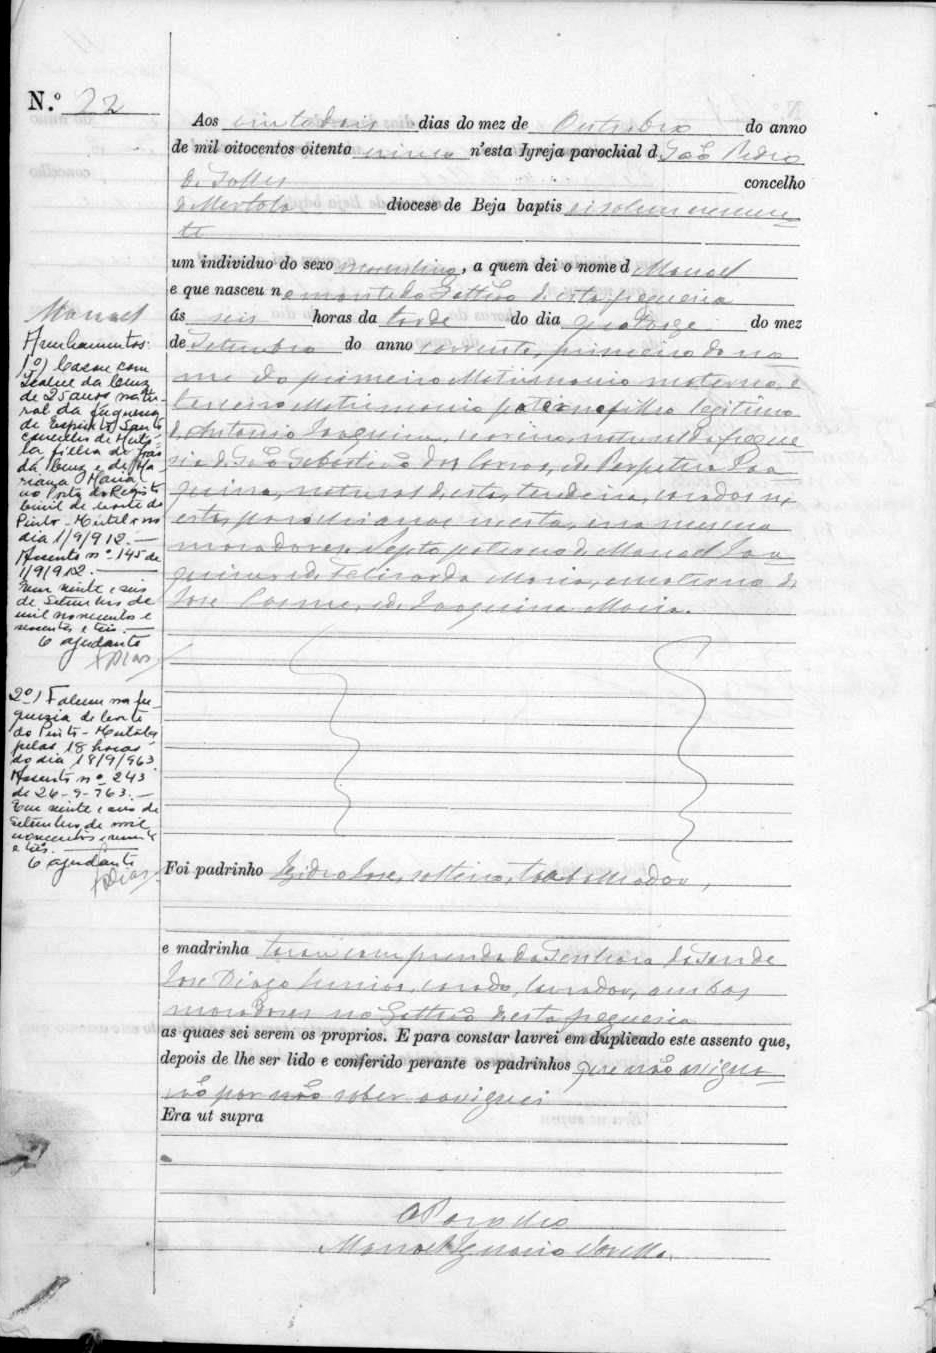 N.º 22
Aos vinte dois dias do mez de Outubro do anno
de mil oitocentos oitenta cinco n'esta Igreja parochial d São Pedro
de Solles concelho
d Mertola diocese de Beja baptis ei solemnemen
te
um individuo do sexo masculino, a quem dei o nome d Manoel
e que nasceu n o monte do desta freguesia
ás seis horas da tarde do dia quatorze do mez
de Setembro do anno corrente, primeiro do no
me do primeiro Matrimonio materno, e
terceiro Matrimonio paterno filho legitimo
d Antonio Joaquim, natural da fregue
sia de São Sebastião dos Carros, e de Perpetua Joa
quina, natural desta, tecedeira, casados n
esta, parochianos nesta, e na mesma
moradores. Nepto paterno de Manoel Joa
quim e de Felizarda Maria, e materno de
José Cosme, e de Joaquina Maria.
Foi padrinho Izidro José, solteiro, trabalhador,
e madrinha tocou com prenda da Senhora
José Diogo Junior, casado, lavrador, ambos
moradores no desta freguesia
as quaes sei serem os proprios. E para constar lavrei em duplicado este assento que,
depois de lhe ser lido e conferido perante os padrinhos que não assigna
rão por não saber assignei
Era ut supra
O Parocho
Manoel Ignacio
Manoel
Averbamentos:
1º) Casou com
Isabel da Cruz
de 25 anos natu-
ral da freguesia
de Espirito Santo
concelho de Merto-
la filha de
da Cruz e de Ma-
riana Maria
no Posto do Registo
Civil de Corte do
Pinto - Mertola no
dia 1/9/912. —
Assento nº 145 de
1/9/912. —
Em vinte e seis
de Setembro de
mil novecentos e
sessenta e três. —
O ajudante
Dias
2º) Faleceu na fre-
guesia de Corte
do Pinto - Mertola
pelas 18 horas
do dia 18/9/963.
Assento nº 243
de 26-9-963. —
Em vinte e seis de
Setembro de mil
novecentos e sessenta
e três. —
O ajudante
Dias